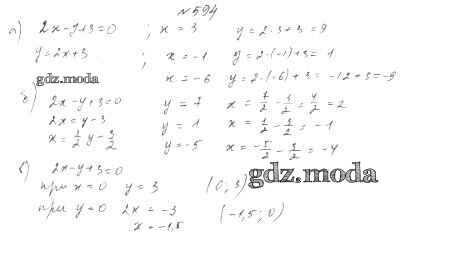 №594
а) 2x-y+3=0 ; x=3 y=2·3+3=9
y=2x+3 ; x=-1 y=2·(-1)+3=1
x=-6 y=2·(-6)+3=-12+3=-9
gdz.moda
б) 2x-y+3=0 y=7 x=7/2-3/2=4/2=2
2x=y-3 y=1 x=1/2-3/2=-1
x=1/2y-3/2 y=-5 x=-5/2-3/2=-4
в) 2x-y+3=0
при x=0 y=3 (0;3)
gdz.moda
при y=0 2x=-3 (-1,5;0)
x=-1,5